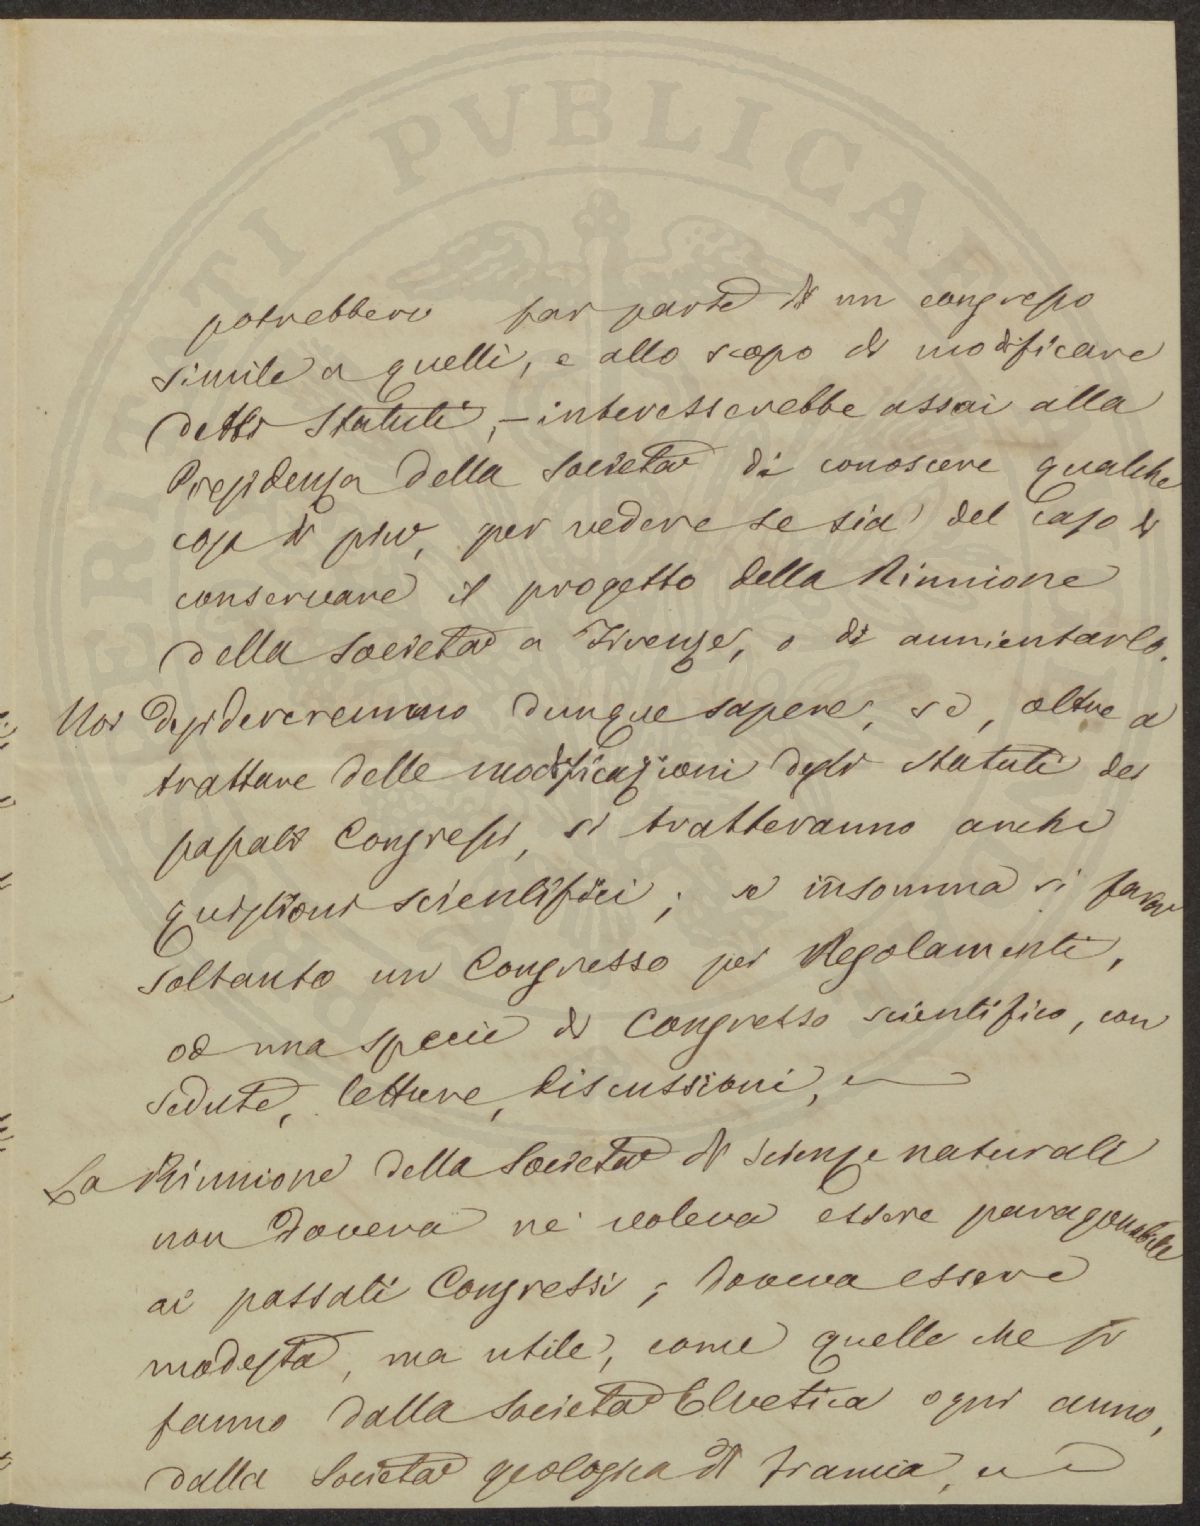 potrebbero far parte di un congresso
simile a quelli, e allo scopo di modificare
detti Statuti, – interesserebbe assai alla
Presidenza della Società di conoscere qualche
cosa di più, per vedere se sia del caso di
conservare il progetto della Riunione
della Società a Firenze, o di annientarlo.
Noi desidereremmo dunque sapere, se, oltre a
trattare delle modificazioni degli Statuti dei
passati Congressi, si tratteranno anche
quistioni scientifici; se insomma si farà
soltanto un Congresso per Regolamenti,
od una specie di Congresso scientifico, con
sedute, letture, discussioni,
La Riunione della Società di Scienze naturali
non doveva nè voleva essere paragonabile
ai passati Congressi; doveva essere
modesta, ma utile, come quelle che si
fanno dalla Società Elvetica ogni anno,
dalla Società geologica di Francia,